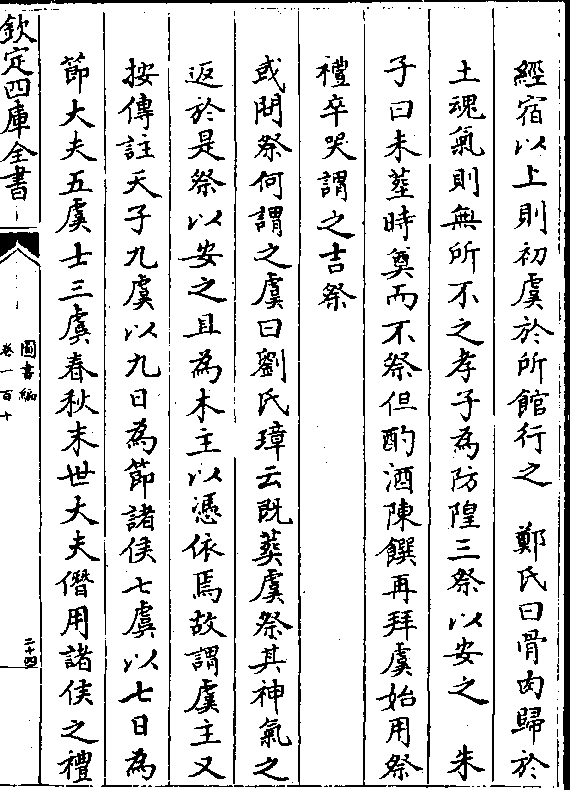 經宿以上則初虞於所館行之　鄭氏曰骨肉歸於
土魂氣則無所不之孝子為防隍三祭以安之　朱
子曰未塟時奠而不祭但酌酒陳饌再拜虞始用祭
禮卒哭謂之吉祭
或問祭何謂之虞曰劉氏璋云既葬虞祭其神氣之
返於是祭以安之且為木主以憑依焉故謂虞主又
按傳註天子九虞以九日為節諸侯七虞以七日為
節大夫五虞士三虞春秋末世大夫僭用諸侯之禮
欽定四庫全書
圖書編
卷一百十
二十四